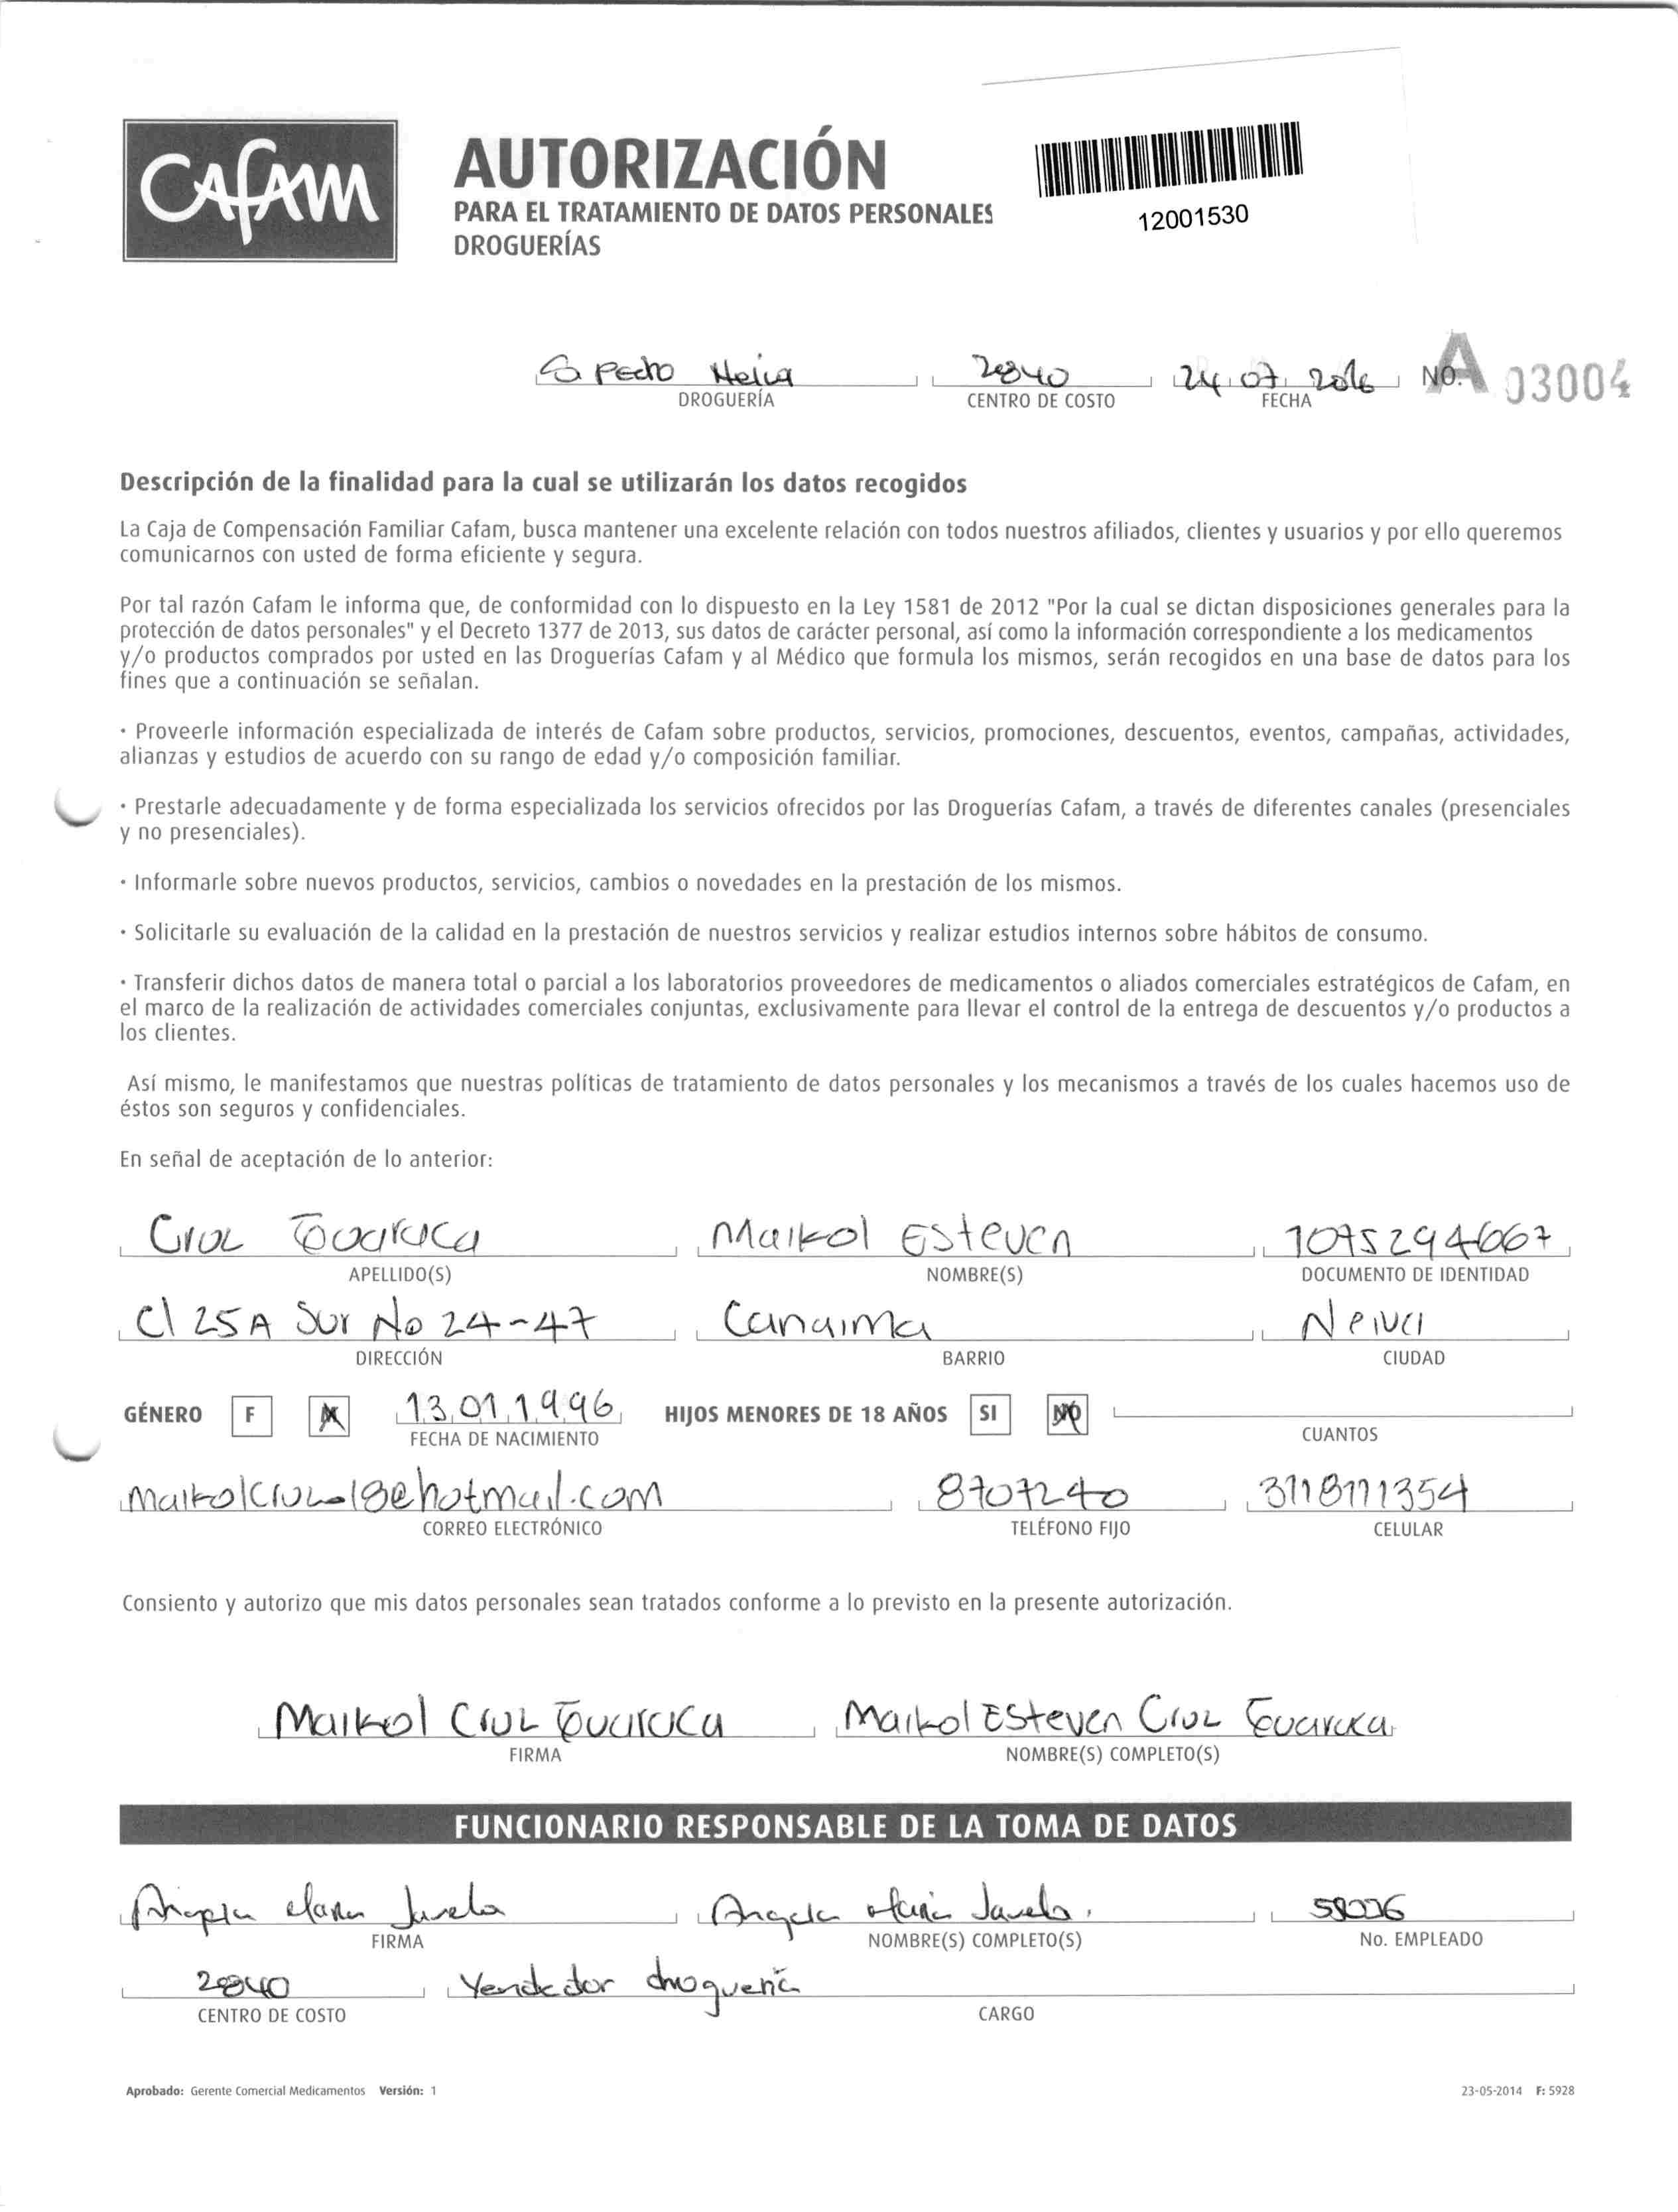 CAFAM
AUTORIZACIÓN
PARA EL TRATAMIENTO DE DATOS PERSONALES
DROGUERÍAS
12001530
Pedro Neiva 20840 24 07 2016 No. A 03004
DROGUERÍA CENTRO DE COSTO FECHA
Descripción de la finalidad para la cual se utilizarán los datos recogidos
La Caja de Compensación Familiar Cafam, busca mantener una excelente relación con todos nuestros afiliados, clientes y usuarios y por ello queremos
comunicarnos con usted de forma eficiente y segura.
Por tal razón Cafam le informa que, de conformidad con lo dispuesto en la Ley 1581 de 2012 "Por la cual se dictan disposiciones generales para la
protección de datos personales" y el Decreto 1377 de 2013, sus datos de carácter personal, así como la información correspondiente a los medicamentos
y/o productos comprados por usted en las Droguerías Cafam y al Médico que formula los mismos, serán recogidos en una base de datos para los
fines que a continuación se señalan.
· Proveerle información especializada de interés de Cafam sobre productos, servicios, promociones, descuentos, eventos, campañas, actividades,
alianzas y estudios de acuerdo con su rango de edad y/o composición familiar.
· Prestarle adecuadamente y de forma especializada los servicios ofrecidos por las Droguerías Cafam, a través de diferentes canales (presenciales
y no presenciales).
· Informarle sobre nuevos productos, servicios, cambios o novedades en la prestación de los mismos.
· Solicitarle su evaluación de la calidad en la prestación de nuestros servicios y realizar estudios internos sobre hábitos de consumo.
· Transferir dichos datos de manera total o parcial a los laboratorios proveedores de medicamentos o aliados comerciales estratégicos de Cafam, en
el marco de la realización de actividades comerciales conjuntas, exclusivamente para llevar el control de la entrega de descuentos y/o productos a
los clientes.
Así mismo, le manifestamos que nuestras políticas de tratamiento de datos personales y los mecanismos a través de los cuales hacemos uso de
éstos son seguros y confidenciales.
En señal de aceptación de lo anterior:
Cruz Maikol Esteven 1075294667
APELLIDO(S) NOMBRE(S) DOCUMENTO DE IDENTIDAD
Cl 25A Sur No 24-47 Canaima Neiva
DIRECCIÓN BARRIO CIUDAD
GÉNERO F M 13 01 1996 HIJOS MENORES DE 18 AÑOS SI NO
FECHA DE NACIMIENTO CUANTOS
8707240 3118111354
CORREO ELECTRÓNICO TELÉFONO FIJO CELULAR
Consiento y autorizo que mis datos personales sean tratados conforme a lo previsto en la presente autorización.
Maikol Cruz Maikol Esteven Cruz
FIRMA NOMBRE(S) COMPLETO(S)
FUNCIONARIO RESPONSABLE DE LA TOMA DE DATOS
Angela Maria Javela Angela Maria Javela.
FIRMA NOMBRE(S) COMPLETO(S) No. EMPLEADO
20840 Vendedor droguería
CENTRO DE COSTO CARGO
Aprobado: Gerente Comercial Medicamentos Versión: 1 23-05-2014 F: 5928